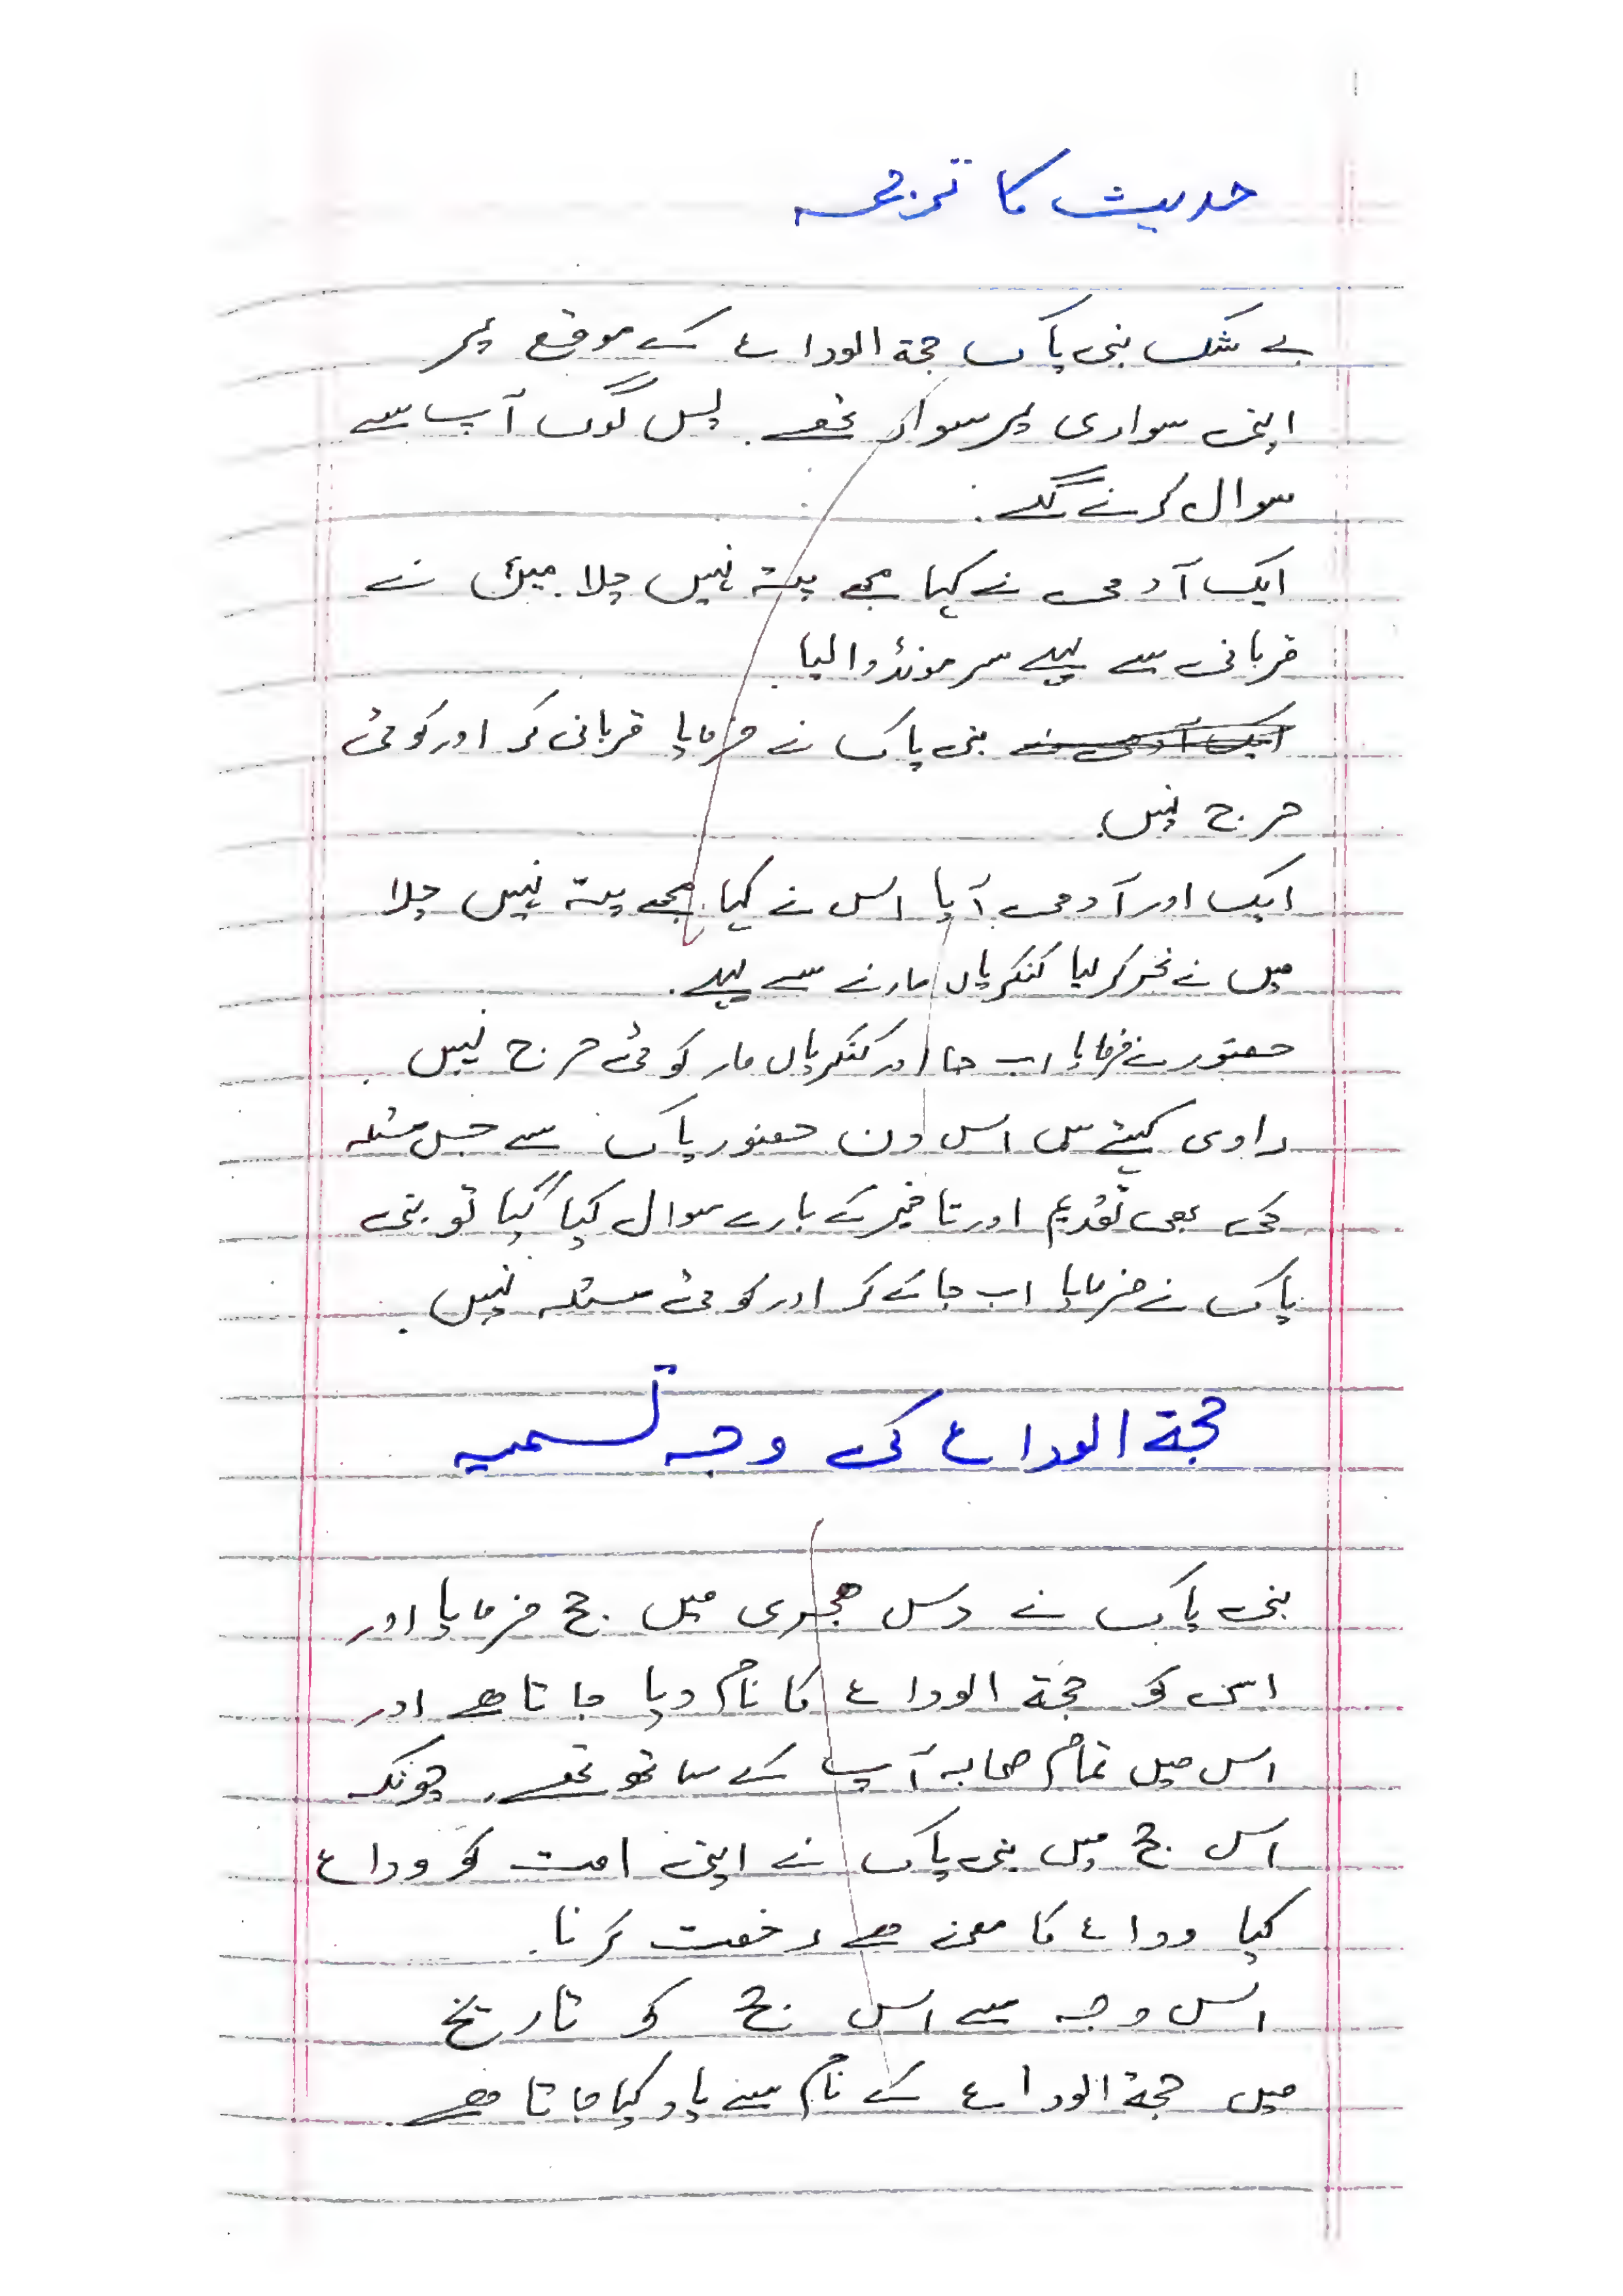 حدیث کا ترجمہ
بے شک نبی پاک حجۃ الوداع کے موقع پر
اپنی سواری پر سوار تھے۔ پس لوگ آپ سے
سوال کرنے لگے۔
ایک آدمی نے کہا مجھے پتہ نہیں چلا میں نے
قربانی سے پہلے سر مونڈوا لیا۔
ایک آدمی نے نبی پاک نے فرمایا قربانی کر اور کوئی
حرج نہیں۔
ایک اور آدمی آیا اس نے کہا مجھے پتہ نہیں چلا
میں نے نحر کر لیا کنکریاں مارنے سے پہلے۔
حضور نے فرمایا اب جا اور کنکریاں مار کوئی حرج نہیں۔
راوی کہتے ہیں اس دن حضور پاک سے جس مسئلہ
کی بھی تقدیم اور تاخیر کے بارے سوال کیا گیا تو نبی
پاک نے فرمایا اب جا کے کر اور کوئی مسئلہ نہیں۔
حجۃ الوداع کی وجہ تسمیہ
نبی پاک نے دس ھجری میں حج فرمایا اور
اسی کو حجۃ الوداع کا نام دیا جاتا ھے اور
اس میں تمام صحابہ آپ کے ساتھ تھے۔ چونکہ
اس حج میں نبی پاک نے اپنی امت کو وداع
کیا وداع کا معنی ھے رخصت کرنا۔
اس وجہ سے اس حج کو تاریخ
میں حجۃ الوداع کے نام سے یاد کیا جاتا ھے۔